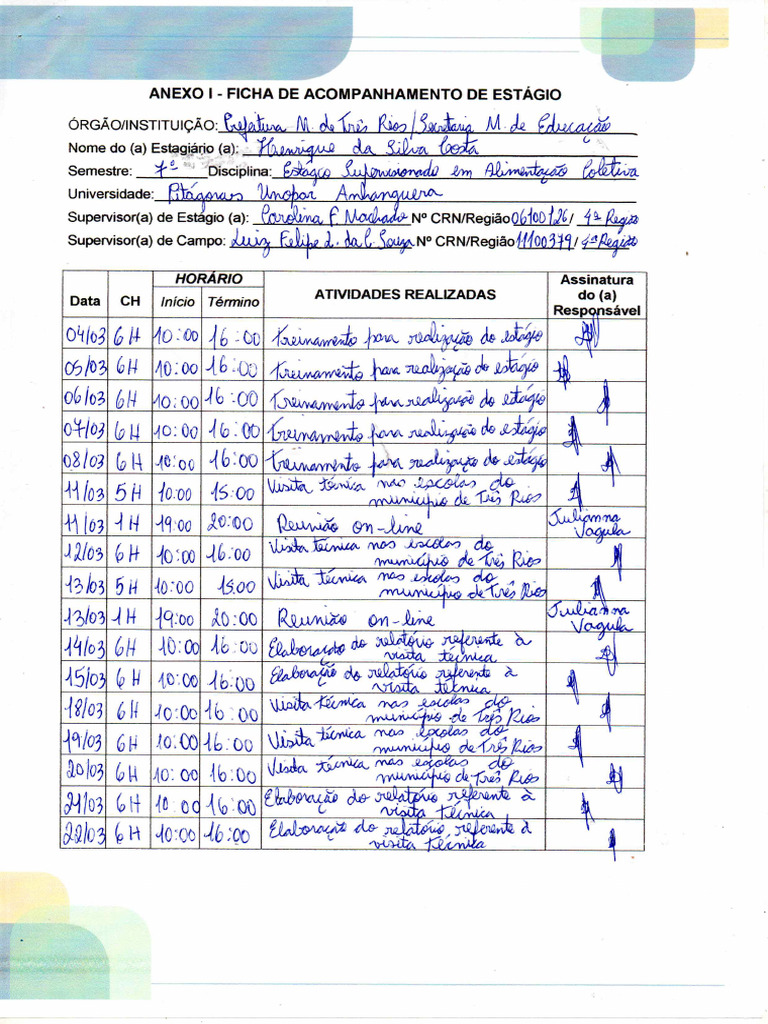 ANEXO I - FICHA DE ACOMPANHAMENTO DE ESTÁGIO
ÓRGÃO/INSTITUIÇÃO: Prefeitura M. de Três Rios/Secretaria M. de Educação
Nome do (a) Estagiário (a): Henrique da Silva Costa
Semestre: 7º Disciplina: Estágio Supervisionado em Alimentação Coletiva
Universidade: Pitágoras Unopar Anhanguera
Supervisor(a) de Estágio (a): Carolina F. Machado Nº CRN/Região 06100126/ 4ª Região
Supervisor(a) de Campo: Luiz Felipe L. da C. Souza Nº CRN/Região 11100379/ 4ª Região
Data CH HORÁRIO Início Término ATIVIDADES REALIZADAS Assinatura do (a) Responsável
04/03 6H 10:00 16:00 Treinamento para realização do estágio
05/03 6H 10:00 16:00 Treinamento para realização do estágio
06/03 6H 10:00 16:00 Treinamento para realização do estágio
07/03 6H 10:00 16:00 Treinamento para realização do estágio
08/03 6H 10:00 16:00 Treinamento para realização do estágio
11/03 5H 10:00 15:00 Visita técnica nas escolas do município de Três Rios
11/03 1H 19:00 20:00 Reunião on-line Julianna Vagula
12/03 6H 10:00 16:00 Visita técnica nas escolas do município de Três Rios
13/03 5H 10:00 15:00 Visita técnica nas escolas do município de Três Rios
13/03 1H 19:00 20:00 Reunião on-line Julianna Vagula
14/03 6H 10:00 16:00 Elaboração do relatório referente à visita técnica
15/03 6H 10:00 16:00 Elaboração do relatório referente à visita técnica
18/03 6H 10:00 16:00 Visita técnica nas escolas do município de Três Rios
19/03 6H 10:00 16:00 Visita técnica nas escolas do município de Três Rios
20/03 6H 10:00 16:00 Visita técnica nas escolas do município de Três Rios
21/03 6H 10:00 16:00 Elaboração do relatório referente à visita técnica
22/03 6H 10:00 16:00 Elaboração do relatório referente à visita técnica